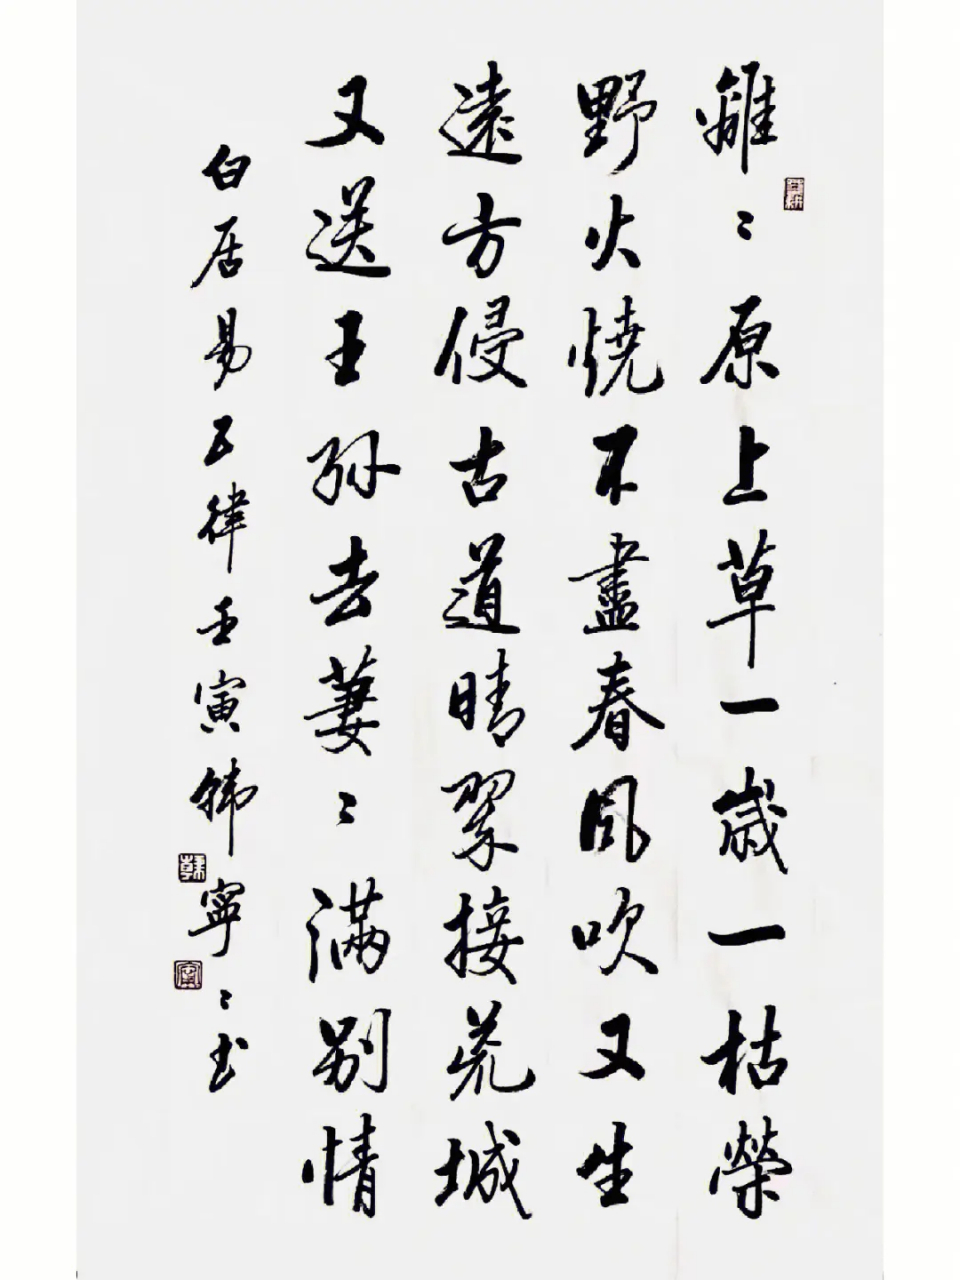 離〻原上草一歲一枯榮
野火燒不盡春風吹又生
遠方侵古道晴翠接荒城
又送王孫去萋〻滿別情
白居易五律壬寅韩寧〻书
韓
寧